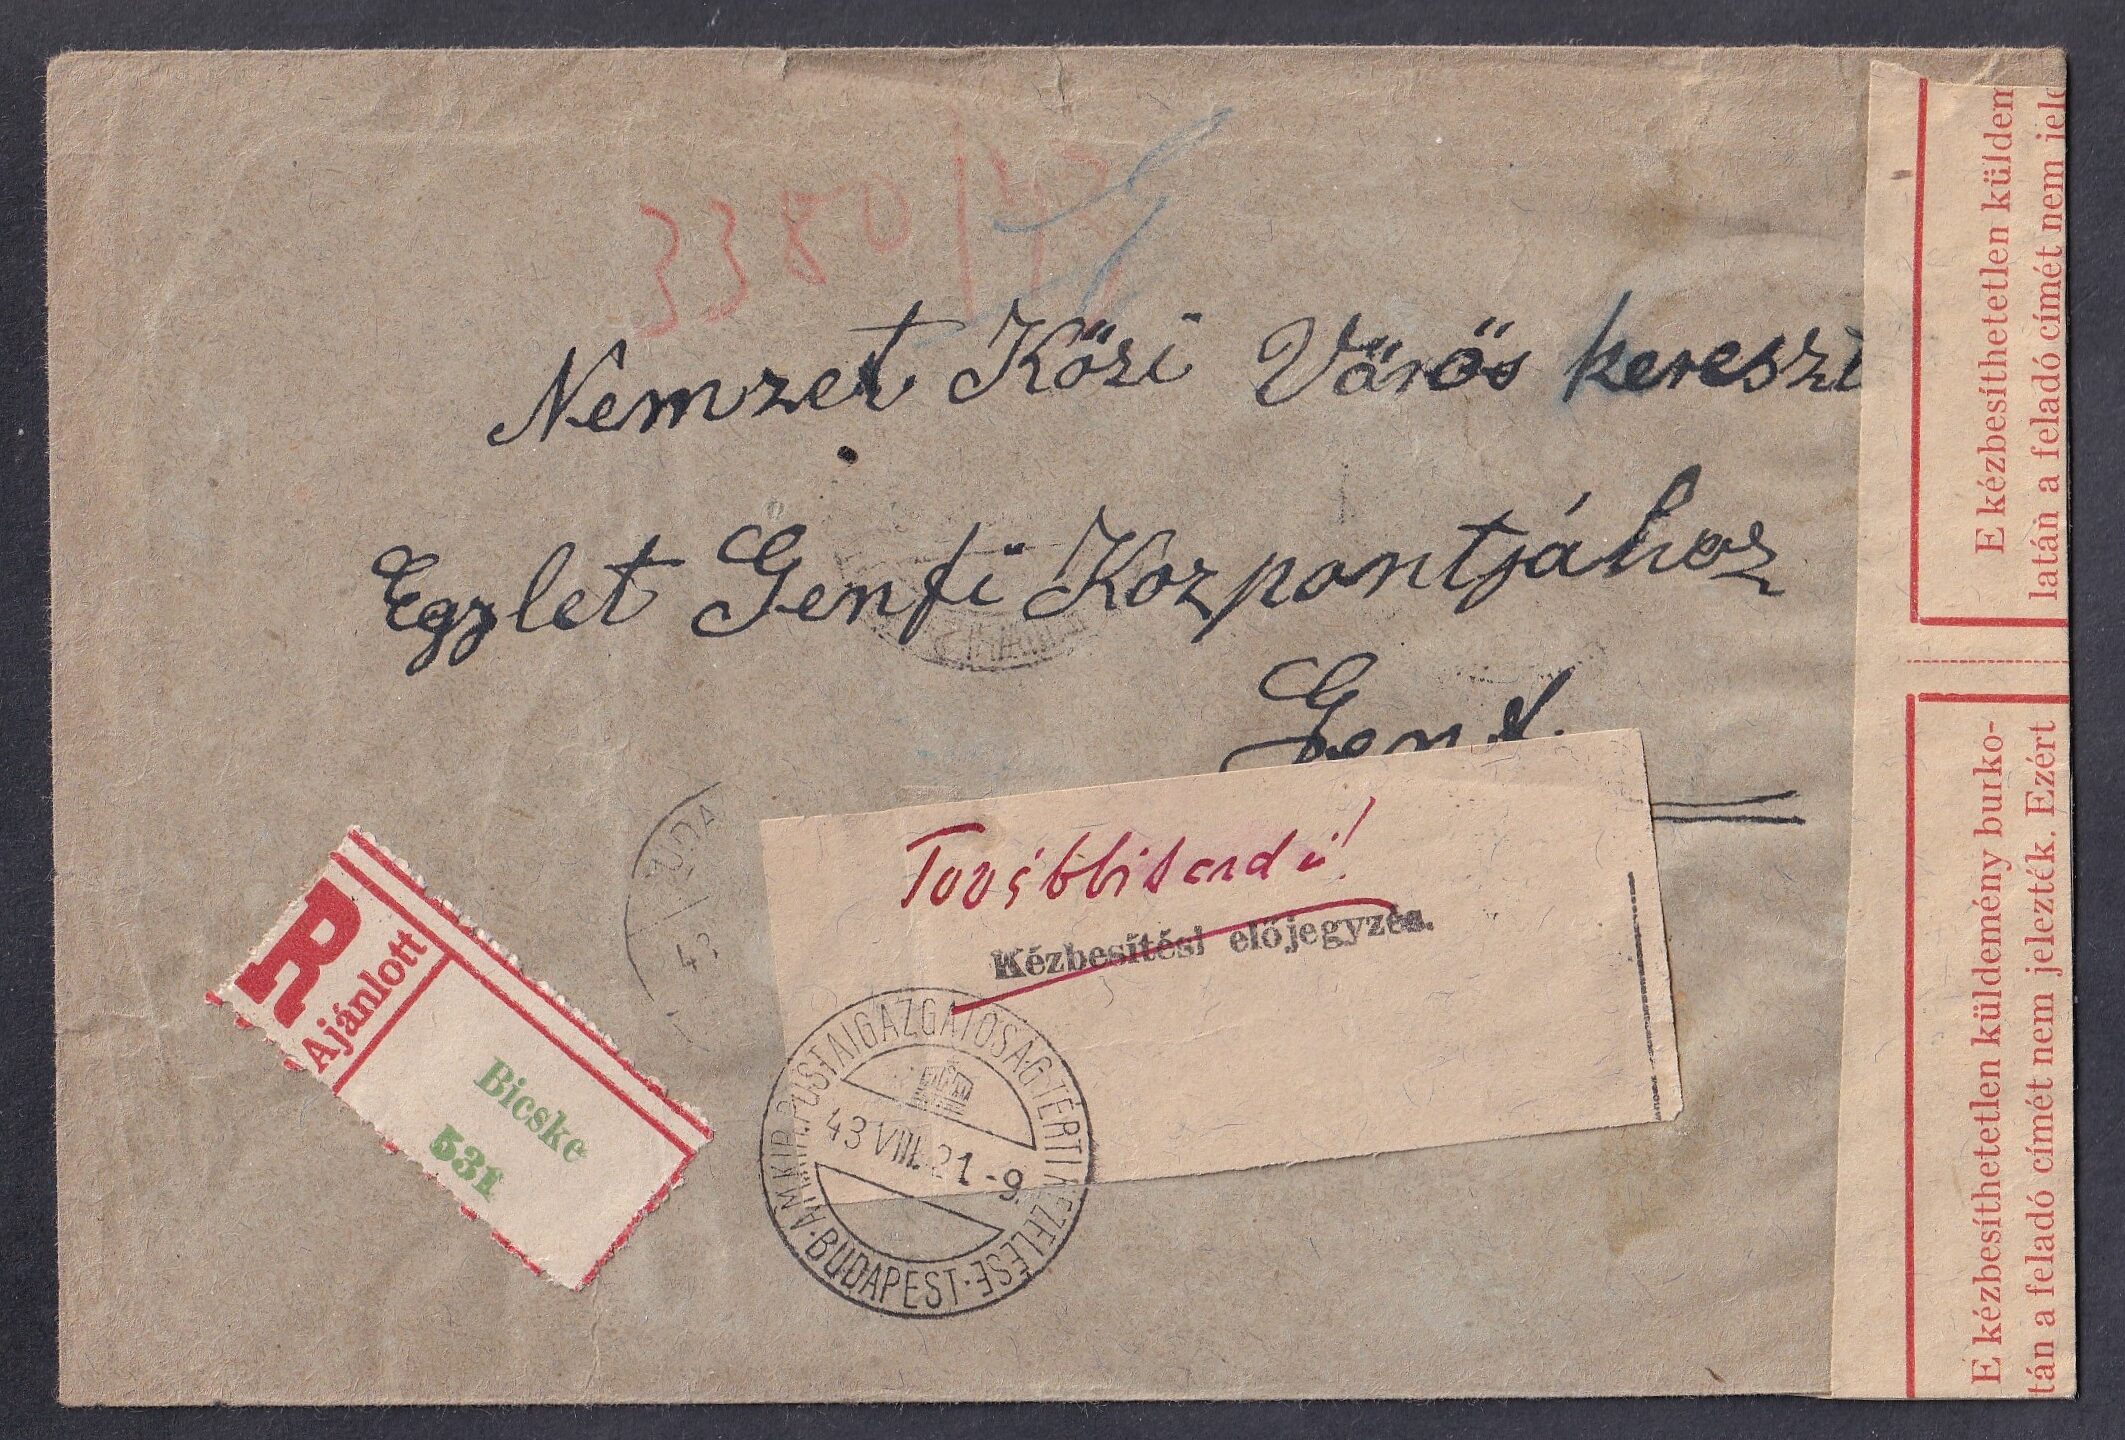 3380/43
Nemzet Közi Vörös kereszt
Egylet Genfi Központjához
Genf.
Továbbitandó!
Kézbesítési előjegyzés.
R
Ajánlott
Bicske
531
UDA
43
A M.KIR.POSTAIGAZGATÓSÁG TÉRTI KEZELÉSE
43 VIII. 21 -9
BUDAPEST
E kézbesíthetetlen küldem
latán a feladó címét nem jele
E kézbesíthetetlen küldemény burko-
tán a feladó címét nem jelezték. Ezért